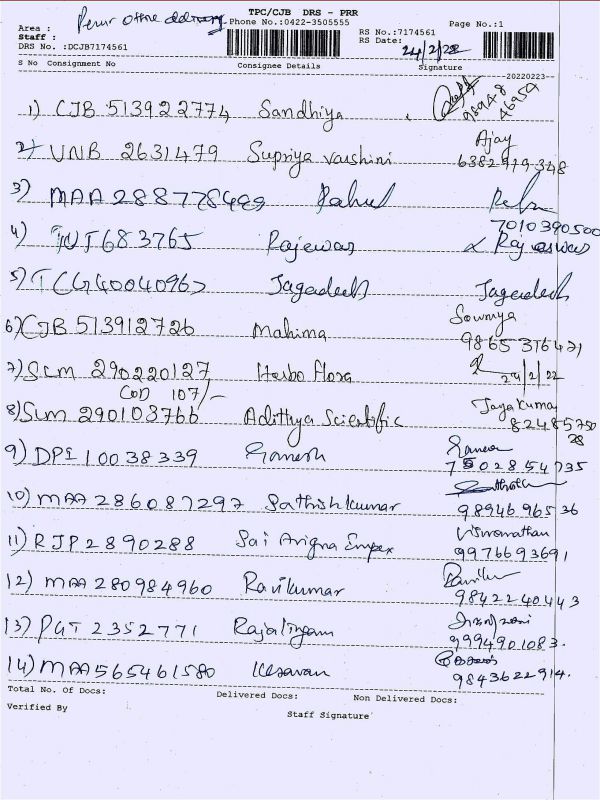 TPC/CJB DRS - PRR
Area : Perur office delivery Phone No.:0422-3505555 Page No.:1
Staff : RS No.:7174561
DRS No. :DCJB7174561 RS Date: 24/2/22
S No Consignment No Consignee Details Signature
20220223
1) CJB 513922774 Sandhiya
2) VNB 2631479 Supriya varshini Ajay
6382979348
3) MAA 288778489 Rahul
7010390500
4) 683765 Rajewar Rajeswar
5) TCG40040965 Jagadeesh Jagadeesh
6) CJB 513912726 Mahima Sowmya
9865376471
7) SLM 290220127 Herbo flora 24/2/22
COD 107/-
8) SLM 290103766 Adithya Scientific Jayakumar
8248575028
9) DPI 10038339 Ganesh Ganesh
7502854735
10) MAA 286087297 Sathishkumar
9894696536
11) RJP 2890288 Sai Avigna Impex Viswanathan
9976693691
12) MAA 280984960 Ravikumar
9842240443
13) PGT 2352771 Rajalingam
9994901083.
14) MAA565461580 Kesavan
9843622914.
Total No. Of Docs: Delivered Docs: Non Delivered Docs:
Verified By
Staff Signature